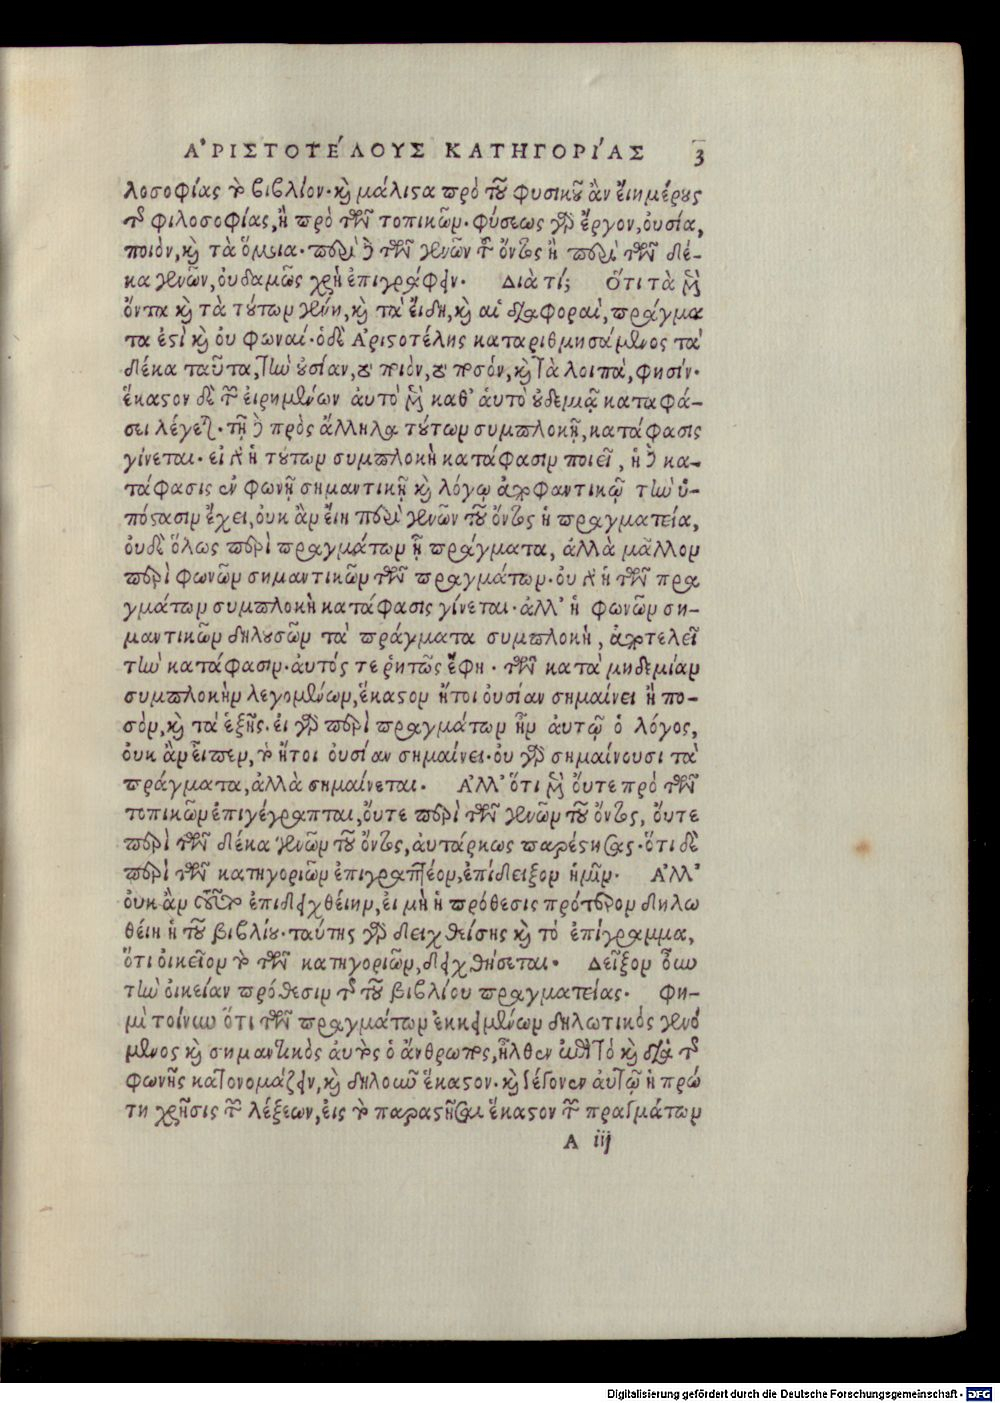 ΑʼΡΙΣΤΟΤΈΛΟΥΣ ΚΑΤΗΓΟΡΊΑΣ 3
λοσοφίας τὸ βιβλίον· καὶ μάλιστα πρὸ τοῦ φυσικοῦ ἂν εἴη μέρους
τῆς φιλοσοφίας, ἢ πρὸ τῶν τοπικῶν· φύσεως γὰρ ἔργον, οὐσία,
ποιὸν, καὶ τὰ ὅμοια· περὶ δὲ τῶν γενῶν τοῦ ὄντος ἢ περὶ τῶν δέ-
κα γενῶν, οὐδαμῶς χρὴ ἐπιγράφειν. Διὰ τί; Ὅτι τὰ μὲν
ὄντα καὶ τὰ τούτων γένη, καὶ τὰ εἴδη, καὶ αἱ διαφοραὶ, πράγμα
τα ἐστὶ καὶ οὐ φωναί· ὁ δὲ Ἀριστοτέλης καταριθμησάμενος τὰ
δέκα ταῦτα, τὴν οὐσίαν, τὸ ποιὸν, τὸ ποσόν, καὶ τὰ λοιπὰ, φησίν·
ἕκαστον δὲ τῶν εἰρημένων αὐτὸ μὲν καθ' αὑτὸ οὐδεμιᾷ καταφά-
σει λέγεται· τῇ δὲ πρὸς ἄλληλα τούτων συμπλοκῇ, κατάφασις
γίνεται· εἰ δὲ ἡ τούτων συμπλοκὴ κατάφασιν ποιεῖ, ἡ δὲ κα-
τάφασις ἐν φωνῇ σημαντικῇ καὶ λόγῳ ἀποφαντικῷ τὴν ὑ-
πόστασιν ἔχει, οὐκ ἂν εἴη περὶ γενῶν τοῦ ὄντος ἡ πραγματεία,
οὐδὲ ὅλως περὶ πραγμάτων ᾗ πράγματα, ἀλλὰ μᾶλλον
περὶ φωνῶν σημαντικῶν τῶν πραγμάτων· οὐ δὲ ἡ τῶν πρα
γμάτων συμπλοκὴ κατάφασις γίνεται· ἀλλ' ἡ φωνῶν ση-
μαντικῶν δηλουσῶν τὰ πράγματα συμπλοκὴ, ἀποτελεῖ
τὴν κατάφασιν· αὐτός τε ῥητῶς ἔφη· τῶν κατὰ μηδεμίαν
συμπλοκὴν λεγομένων, ἕκαστον ἤτοι οὐσίαν σημαίνει ἢ πο-
σὸν, καὶ τὰ ἑξῆς· εἰ γὰρ περὶ πραγμάτων ἦν αὐτῷ ὁ λόγος,
οὐκ ἂν εἶπεν, τὸ ἤτοι οὐσίαν σημαίνει· οὐ γὰρ σημαίνουσι τὰ
πράγματα, ἀλλὰ σημαίνεται. Ἀλλ' ὅτι μὲν οὔτε πρὸ τῶν
τοπικῶν ἐπιγέγραπται, οὔτε περὶ τῶν γενῶν τοῦ ὄντος, οὔτε
περὶ τῶν δέκα γενῶν τοῦ ὄντος, αὐτάρκως παρέστησας· ὅτι δὲ
περὶ τῶν κατηγοριῶν ἐπιγραπτέον, ἐπίδειξον ἡμῖν. Ἀλλ'
οὐκ ἂν τοῦτο ἐπιδειχθείην, εἰ μὴ ἡ πρόθεσις πρότερον δηλω
θείη ἡ τοῦ βιβλίου· ταύτης γὰρ δειχθείσης καὶ τὸ ἐπίγραμμα,
ὅτι οἰκεῖον τὸ τῶν κατηγοριῶν, δειχθήσεται. Δεῖξον οὖν
τὴν οἰκείαν πρόθεσιν τῆς τοῦ βιβλίου πραγματείας. Φη-
μὶ τοίνυν ὅτι τῶν πραγμάτων ἐκκειμένων δηλωτικὸς γενό
μενος καὶ σημαντικὸς αὐτοῖς ὁ ἄνθρωπος, ἦλθεν ἐπὶ τὸ καὶ διὰ τῆς
φωνῆς κατονομάζειν, καὶ δηλοῦν ἕκαστον· καὶ γέγονεν αὐτῷ ἡ πρώ
τη χρῆσις τῶν λέξεων, εἰς τὸ παραστῆσαι ἕκαστον τῶν πραγμάτων
A iij
Digitalisierung gefördert durch die Deutsche Forschungsgemeinschaft - DFG